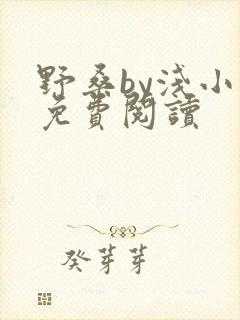 野桑by浅小
免費閱讀
癸芽芽